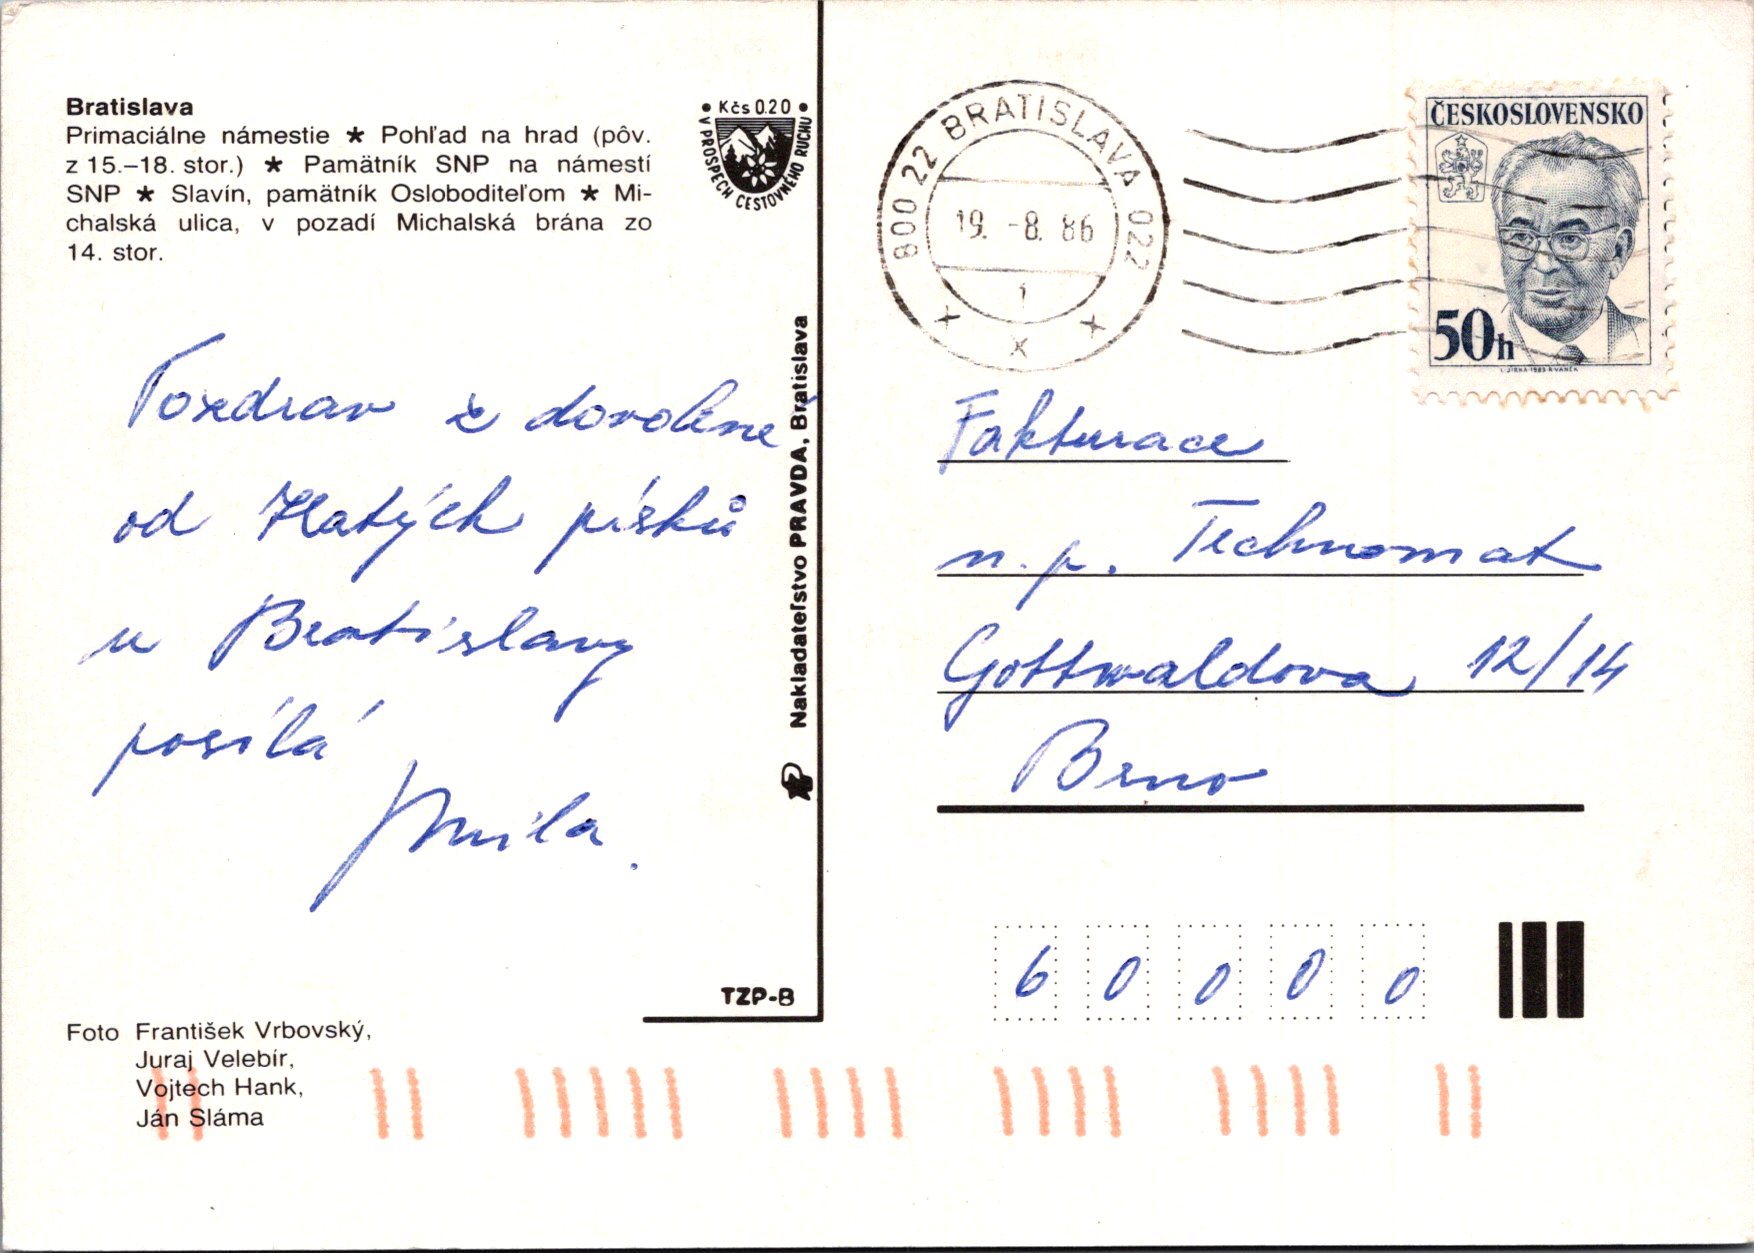 Bratislava
Primaciálne námestie ★ Pohľad na hrad (pôv.
z 15.–18. stor.) ★ Pamätník SNP na námestí
SNP ★ Slavín, pamätník Osloboditeľom ★ Mi-
chalská ulica, v pozadí Michalská brána zo
14. stor.
• Kčs 0.20 •
V PROSPECH CESTOVNÉHO RUCHU
Pozdrav z dovolené
od Zlatých písků
u Bratislavy
posílá
Míla.
Nakladateľstvo PRAVDA, Bratislava
TZP-B
Foto František Vrbovský,
Juraj Velebír,
Vojtech Hank,
Ján Sláma
800 22 BRATISLAVA 022
19. -8. 86
1
x
ČESKOSLOVENSKO
50h
I. JIRKA-1983-R. VANĚK
Fakturace
n.p. Technomat
Gottwaldova 12/14
Brno
6 0 0 0 0